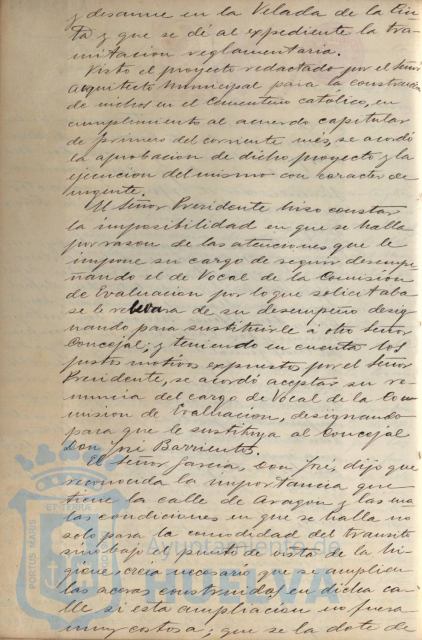 y desarme en la Velada de la Cin
ta y que se dé al expediente la tra-
mitacion reglamentaria.
Visto el proyecto redactado por el Señor
Arquitecto Municipal para la construccion
de nichos en el Cementerio católico, en
cumplimiento al acuerdo capitular
de primero del corriente mes, se acordó
la aprobacion de dicho proyecto y la
ejecucion del mismo con caracter de
urgente.
El Señor Presidente hizo constar
la imposibilidad en que se halla
por razon de las atenciones que le
impone su cargo de seguir desempe-
ñando el de Vocal de la Comision
de Evaluacion por lo que solicitaba
se le relevara de su desempeño desig-
nando para sustituirle á otro Señor
Concejal; y teniendo en cuenta los
justos motivos expuestos por el Señor
Presidente, se acordó aceptar su re-
nuncia del cargo de Vocal de la Co-
mision de Evaluacion, designando
para que le sustituya al Concejal
Don José Barrientos.
El Señor Garcia, Don José, dijo que
reconocida la importancia que
tiene la calle de Aragon y las ma
las condiciones en que se halla no
solo para la comodidad del transito
sino bajo el punto de vista de la hi-
giene, creia necesario que se amplien
las aceras construidas en dicha ca-
lle si esta ampliacion no fuera
muy costosa; que se la dote de
PORTUS MARIS
ET TERRÆ
Ayuntamiento de
HUELVA